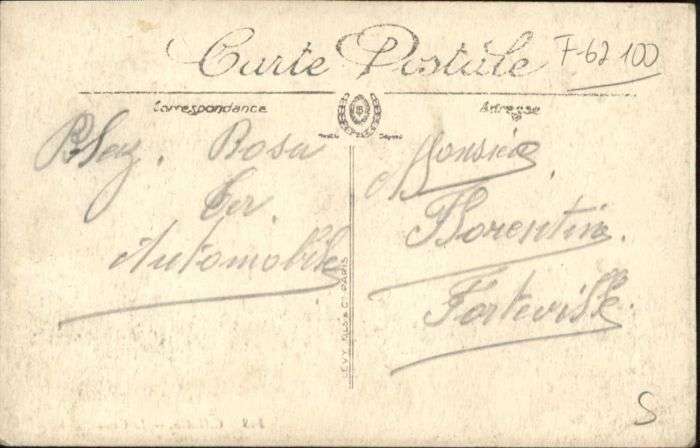 Carte Postale
F-62 100
Correspondance
Adresse
Modèle Déposé
Rosa
Automobile
Monsieur
Florentin
Forteville
LEVY FILS & Cie PARIS
S